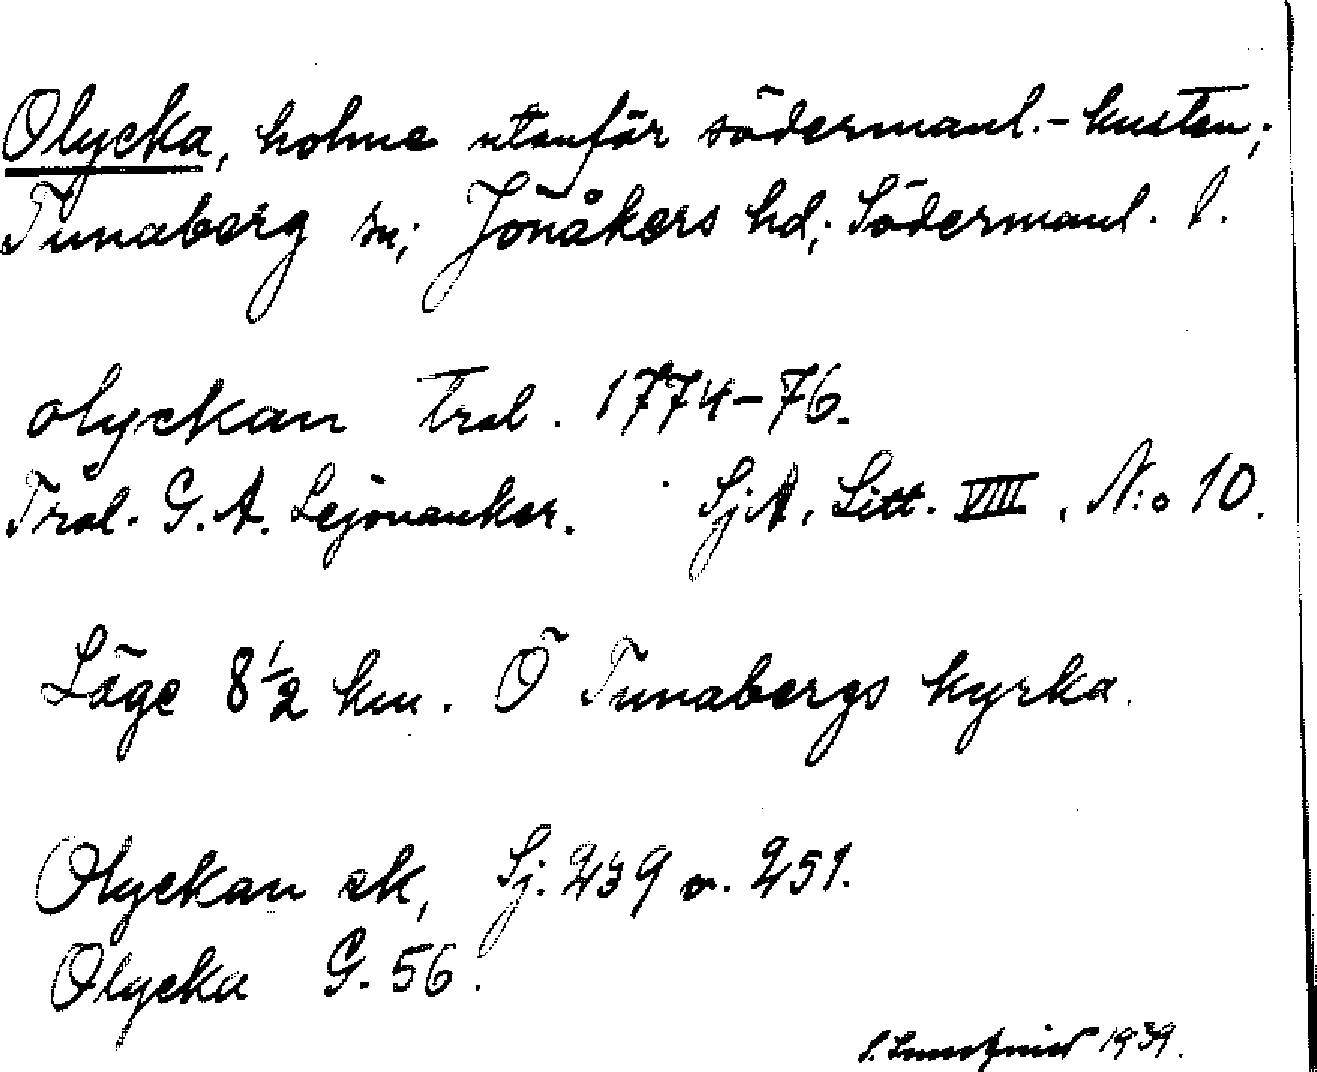 Olycka, holme utanför södermanl.-kusten;
Tunaberg sn; Jönåkers hd; Södermanl. l.
olyckan trol. 1774-76.
Trol. G. A. Lejonanker. SjA, Litt. VIII, N:o 10.
Läge 8 1/2 km. Ö Tunabergs kyrka.
Olyckan sk, Sj. 239 o. 251.
Olycka G. 56.
1939.